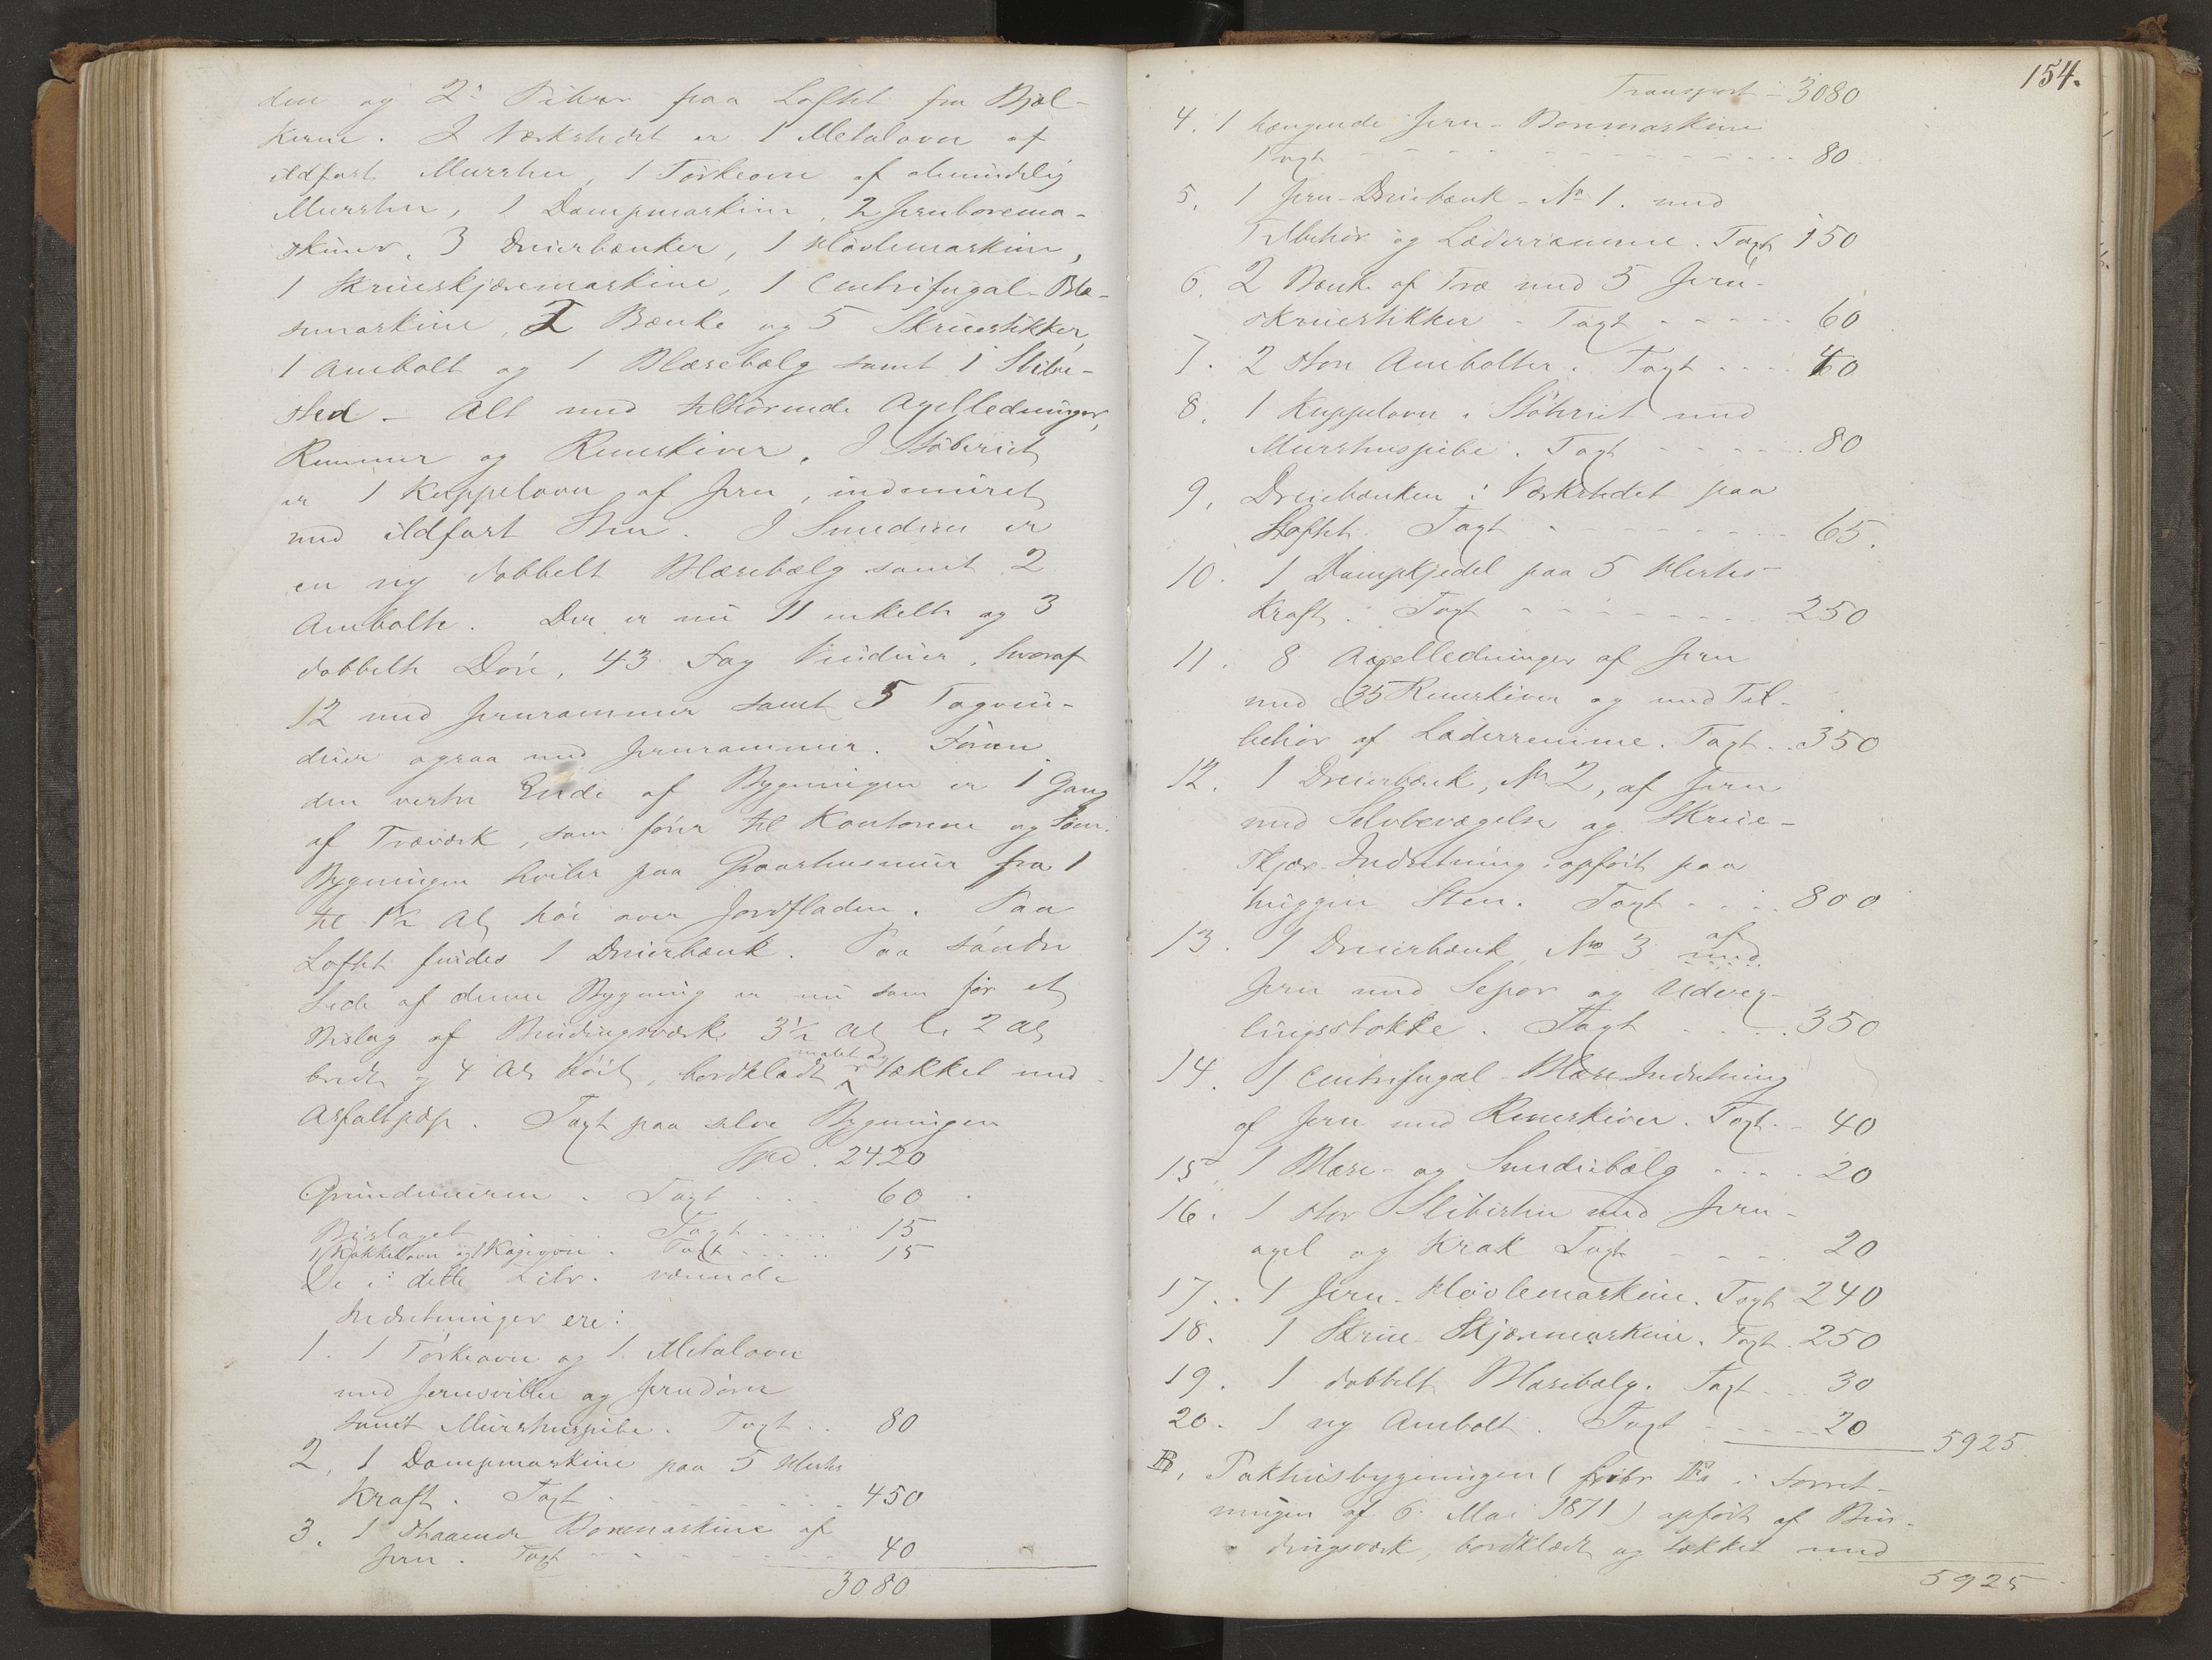 den og 2: Piber paa Loftet fra Bjæl-
kerne. I Værkstedet er 1 Metalovn af
ildfast Mursten, 1 Törkeovn af almindelig
Mursten, 1 Dampmaskine, 2 Jernborema-
skiner, 3 Dreierbænker, 1 Hövlemaskine,
1 Skrueskjæremaskine, 1 Centrifugal-Blæ-
semaskine, 2 Bænke og 5 Skruestikker,
1 Ambolt og 1 Blæsebælg samt 1 Slibe-
sted - Alt med tilhörende Axelledninger,
Remmer og Remskiver. I Støberiet
er 1 Kuppelovn af Jern, indmuret
med ildfast Sten. I Smedien er
en ny dobbelt Blæsebælg samt 2
Ambolte. Der er nu 11 enkelte og 3
dobbelte Döre, 43 Fag Vinduer, hvoraf
12 med Jernrammer samt 5 Tagvin-
duer ogsaa med Jernrammer. Foran
den vestre Ende af Bygningen er 1 Gang
af Træværk, som förer til Kontorerne og
Bygningen hviler paa Graastensmur fra 1
til 1½ Al höi over Jordfladen. Paa
Loftet findes 1 Dreierbænk. Paa söndre
Side af denne Bygning er nu som för et
Bislag af Bindingsværk 3½ Al l. 2 Al
bredt og 4 Al höit, bordklædt malet og tækket med
Asfaltpap. Taxt paa selve Bygningen
Spd. 2420
Grundmuren. Taxt 60
Bislaget Taxt 15
1 Kakkelovn og 1 Kogeovn. Taxt 15
De i dette Litr. værende
Indretninger ere:
1. 1 Törkeovn og 1 Metalovn
med Jernsviller og Jerndöre
samt Murstenspibe. Taxt 80
2. 1 Dampmaskine paa 5 Hestes
Kraft. Taxt 450
3. 1 staaende Boremaskine af
Jern. Taxt 40
3080
154.
Transport - 3080
4. 1 hængende Jern-Boremaskine
Taxt 80
5. 1 Jern-Dreiebænk - No 1. med
Tilbehör og Læderremme. Taxt 150
6. 2 Bænke af Træ med 5 Jern-
skruestikker - Taxt 60
7. 2 store Ambolter. Taxt 40
8. 1 Kuppelovn i Stöberiet med
Murstenspibe. Taxt 80
9. Dreiebænken i Værkstedet paa
Loftet. Taxt 65.
10. 1 Dampkjedel paa 5 Hestes
Kraft. Taxt 250
11. 8 Axelledninger af Jern
med 35 Remskiver og med Til-
behör af Læderremme. Taxt 350
12. 1 Dreierbænk, No 2, af Jern
med Selvbevægelse og Skrue-
skjær-Indretning opfört paa
huggen Sten. Taxt 800
13. 1 Dreierbænk No 3 af med
Jern med Sepor og Udvex-
lingsstokke. Taxt 350
14. 1 Centrifugal-Blæse Indretning
af Jern med Remskiver. Taxt 40
15. 1 Blæse- og Smediebælg 20
16. 1 stor Slibesten med Jern-
axel og Krak Taxt 20
17. 1 Jern-Hövlemaskine. Taxt 240
18. 1 Skrue-Skjæremaskine. Taxt 250
19. 1 dobbelt Blæsebælg. Taxt 30
20. 1 ny Ambolt. Taxt 20 5925
B, Pakhusbygningen (Litr i Forret-
ningen af 6. Mai 1871) opfört af Bin-
dingsværk, bordklædt og tækket med
5925